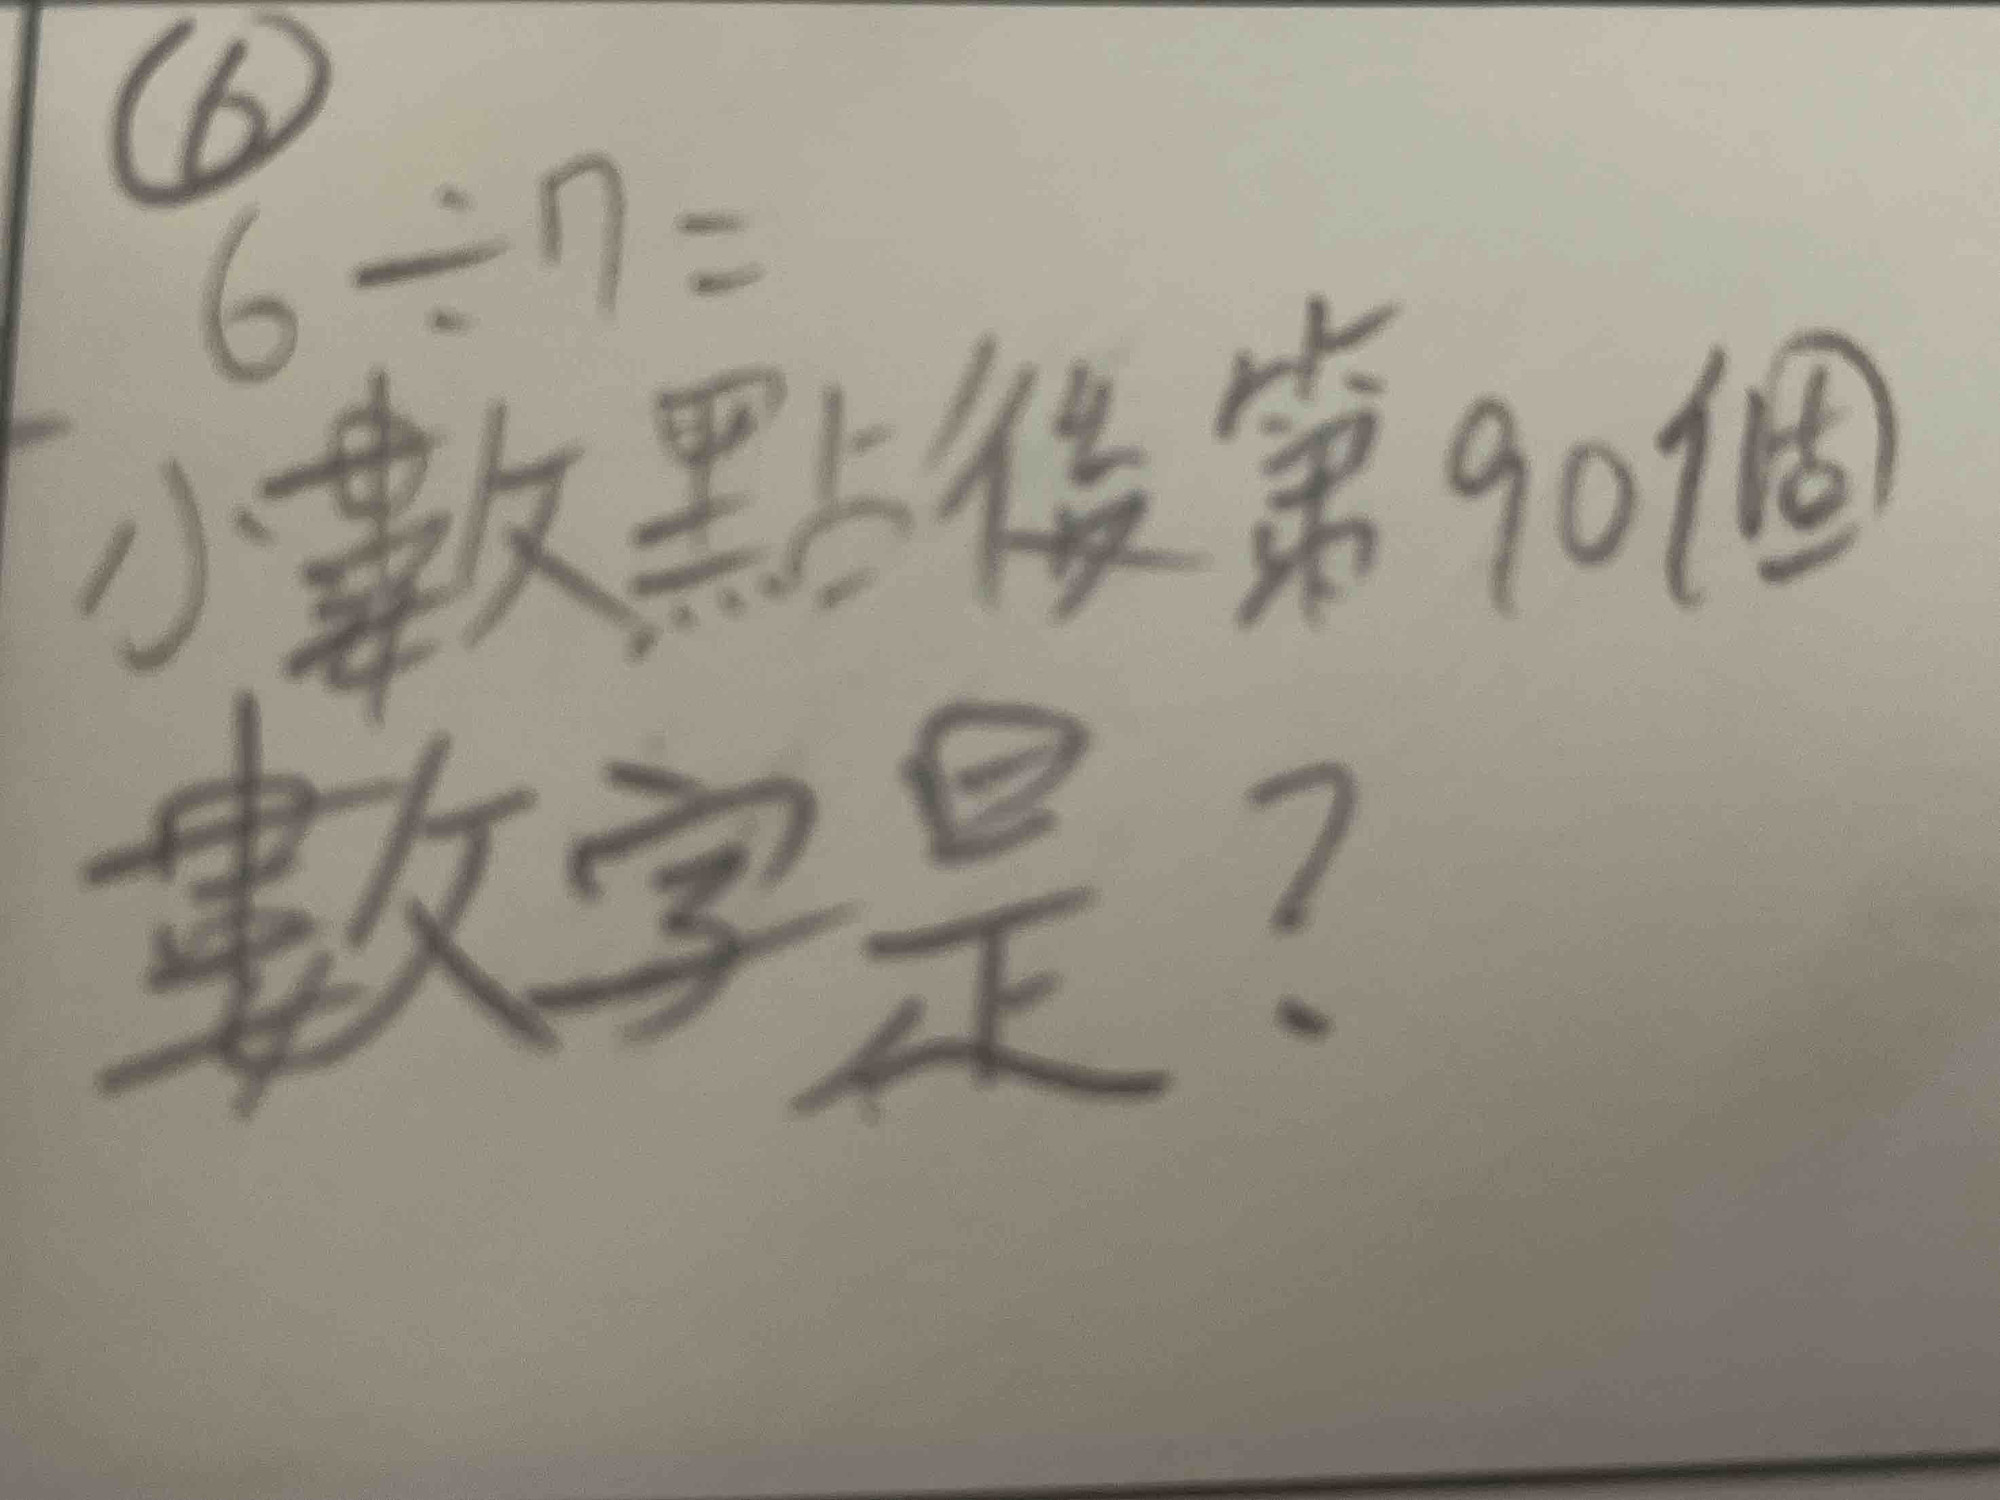 ⑥
6÷7=
小數點後第90個
數字是?